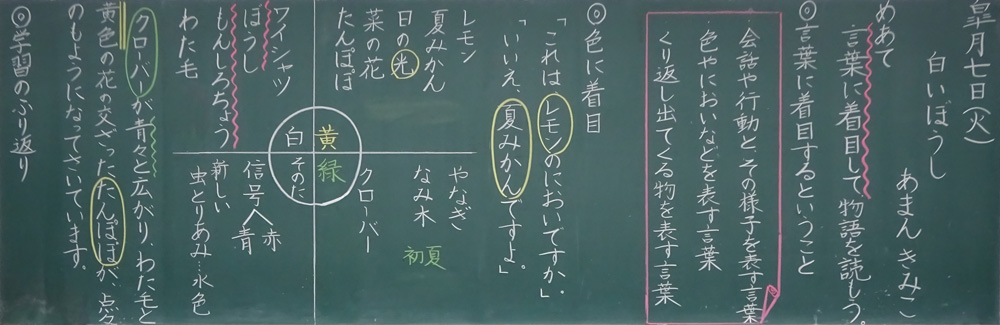 皐月七日(火)
白いぼうし
あまんきみこ
めあて
言葉に着目して物語を読もう。
◎言葉に着目するということ
・会話や行動とその様子を表す言葉
・色やにおいなどを表す言葉
・くり返し出てくる物を表す言葉
◎色に着目
「これは、レモンのにおいですか。」
「いいえ、夏みかんですよ。」
レモン
夏みかん
日の光
菜の花
たんぽぽ
黄
緑
白
その他
やなぎ
なみ木
クローバー
初夏
ワイシャツ
ぼうし
もんしろちょう
わた毛
信号
赤
青
新しい
虫とりあみ…水色
クローバーが青々と広がり、わた毛と
黄色の花の交ざったたんぽぽが、点々
のもようになってさいています。
◎学習のふり返り